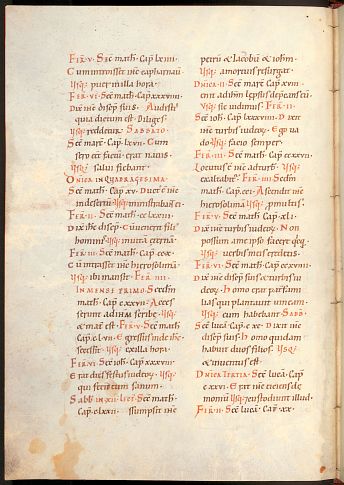 FER · V · Sec math · Cap lxiiii ·
Cum introisset ihc capharnaū
Usq; puer in illa hora ·
FER · VI · Sec math · Cap xxxviiii
Dix ihc discip suis · Audistis
quia dictum est · Diliges
Usq; reddet ur · SABBATO ·
Sec marc · Cap lxvii · Cum
sero eēt factū erat nauis
Usq; salui fiebant ·
DNICA IN QUADRAGESIMA ·
Sec math · Cap xv · Duct · ē ihc
in desertū Usq; ministrabant ei ·
FER · II · Sec math · cc lxxiii
Dix ihc discip · Cū uenerit fili
hominis Usq; in uitā eternā ·
FER · III · Sec math · Cap ccvi ·
Cū intrasset ihc hierosolimā
Usq; ibi mansit · FER · IIII ·
IN MENSE PRIMO · Secdm
math · Cap cxxvii · Acces
serunt ad ihm scribe Usq;
& mat est · FER · V · Sec math
Cap clvii · Egressus inde ihc
secessit Usq; ex illa hora ·
FER · VI · Sec ioh · Cap xxxviii ·
Erat dies festus iudeoꝝ · Usq;
qui fecit eum sanum ·
Sabb in xii · lect · Sec math
Cap clxxii · Assumpsit ihc
petrū & iacobū & iohm ·
Usq; a mortuis resurgat ·
DNICA · II · Sec marc · Cap
Usq; sic uidimus · FER · II ·
Sec ioh · Cap lxxxviii · Dixit
ihc turbis iudeoꝝ · Ego ua
do Usq; facio semper ·
FER · III · Sec math · Cap ccxxvii
Locutus ē ihc ad turb · Usq;
exaltabit · FER · IIII · Secdm
math · Cap cci · Ascendit ihc
hierosolimā Usq; p multis ·
FER · V · Sec ioh · Cap xli ·
Dix ihc turbis iudeoꝝ · Non
possum a me ipso facere qcq;
Usq; uerbis meis credetis ·
FER · VI · Sec math · Cap ccxviiii
Dix ihc discip suis & turbis iu
deoꝝ · Homo erat paterfami
lias qui plantauit uineam
Usq; eum habebant · SABB ·
Sec lucā · Cap c xc · Dixit ihc
discip suis · Homo quidam
habuit duos filios · Usq;
& inuentus est ·
DNICA TERTIA · Sec lucā · Cap
cxxvi · Erat ihc eiciens de
moniū Usq; custodiunt illud ·
FER · II · Sec lucā · Cap · xx ·